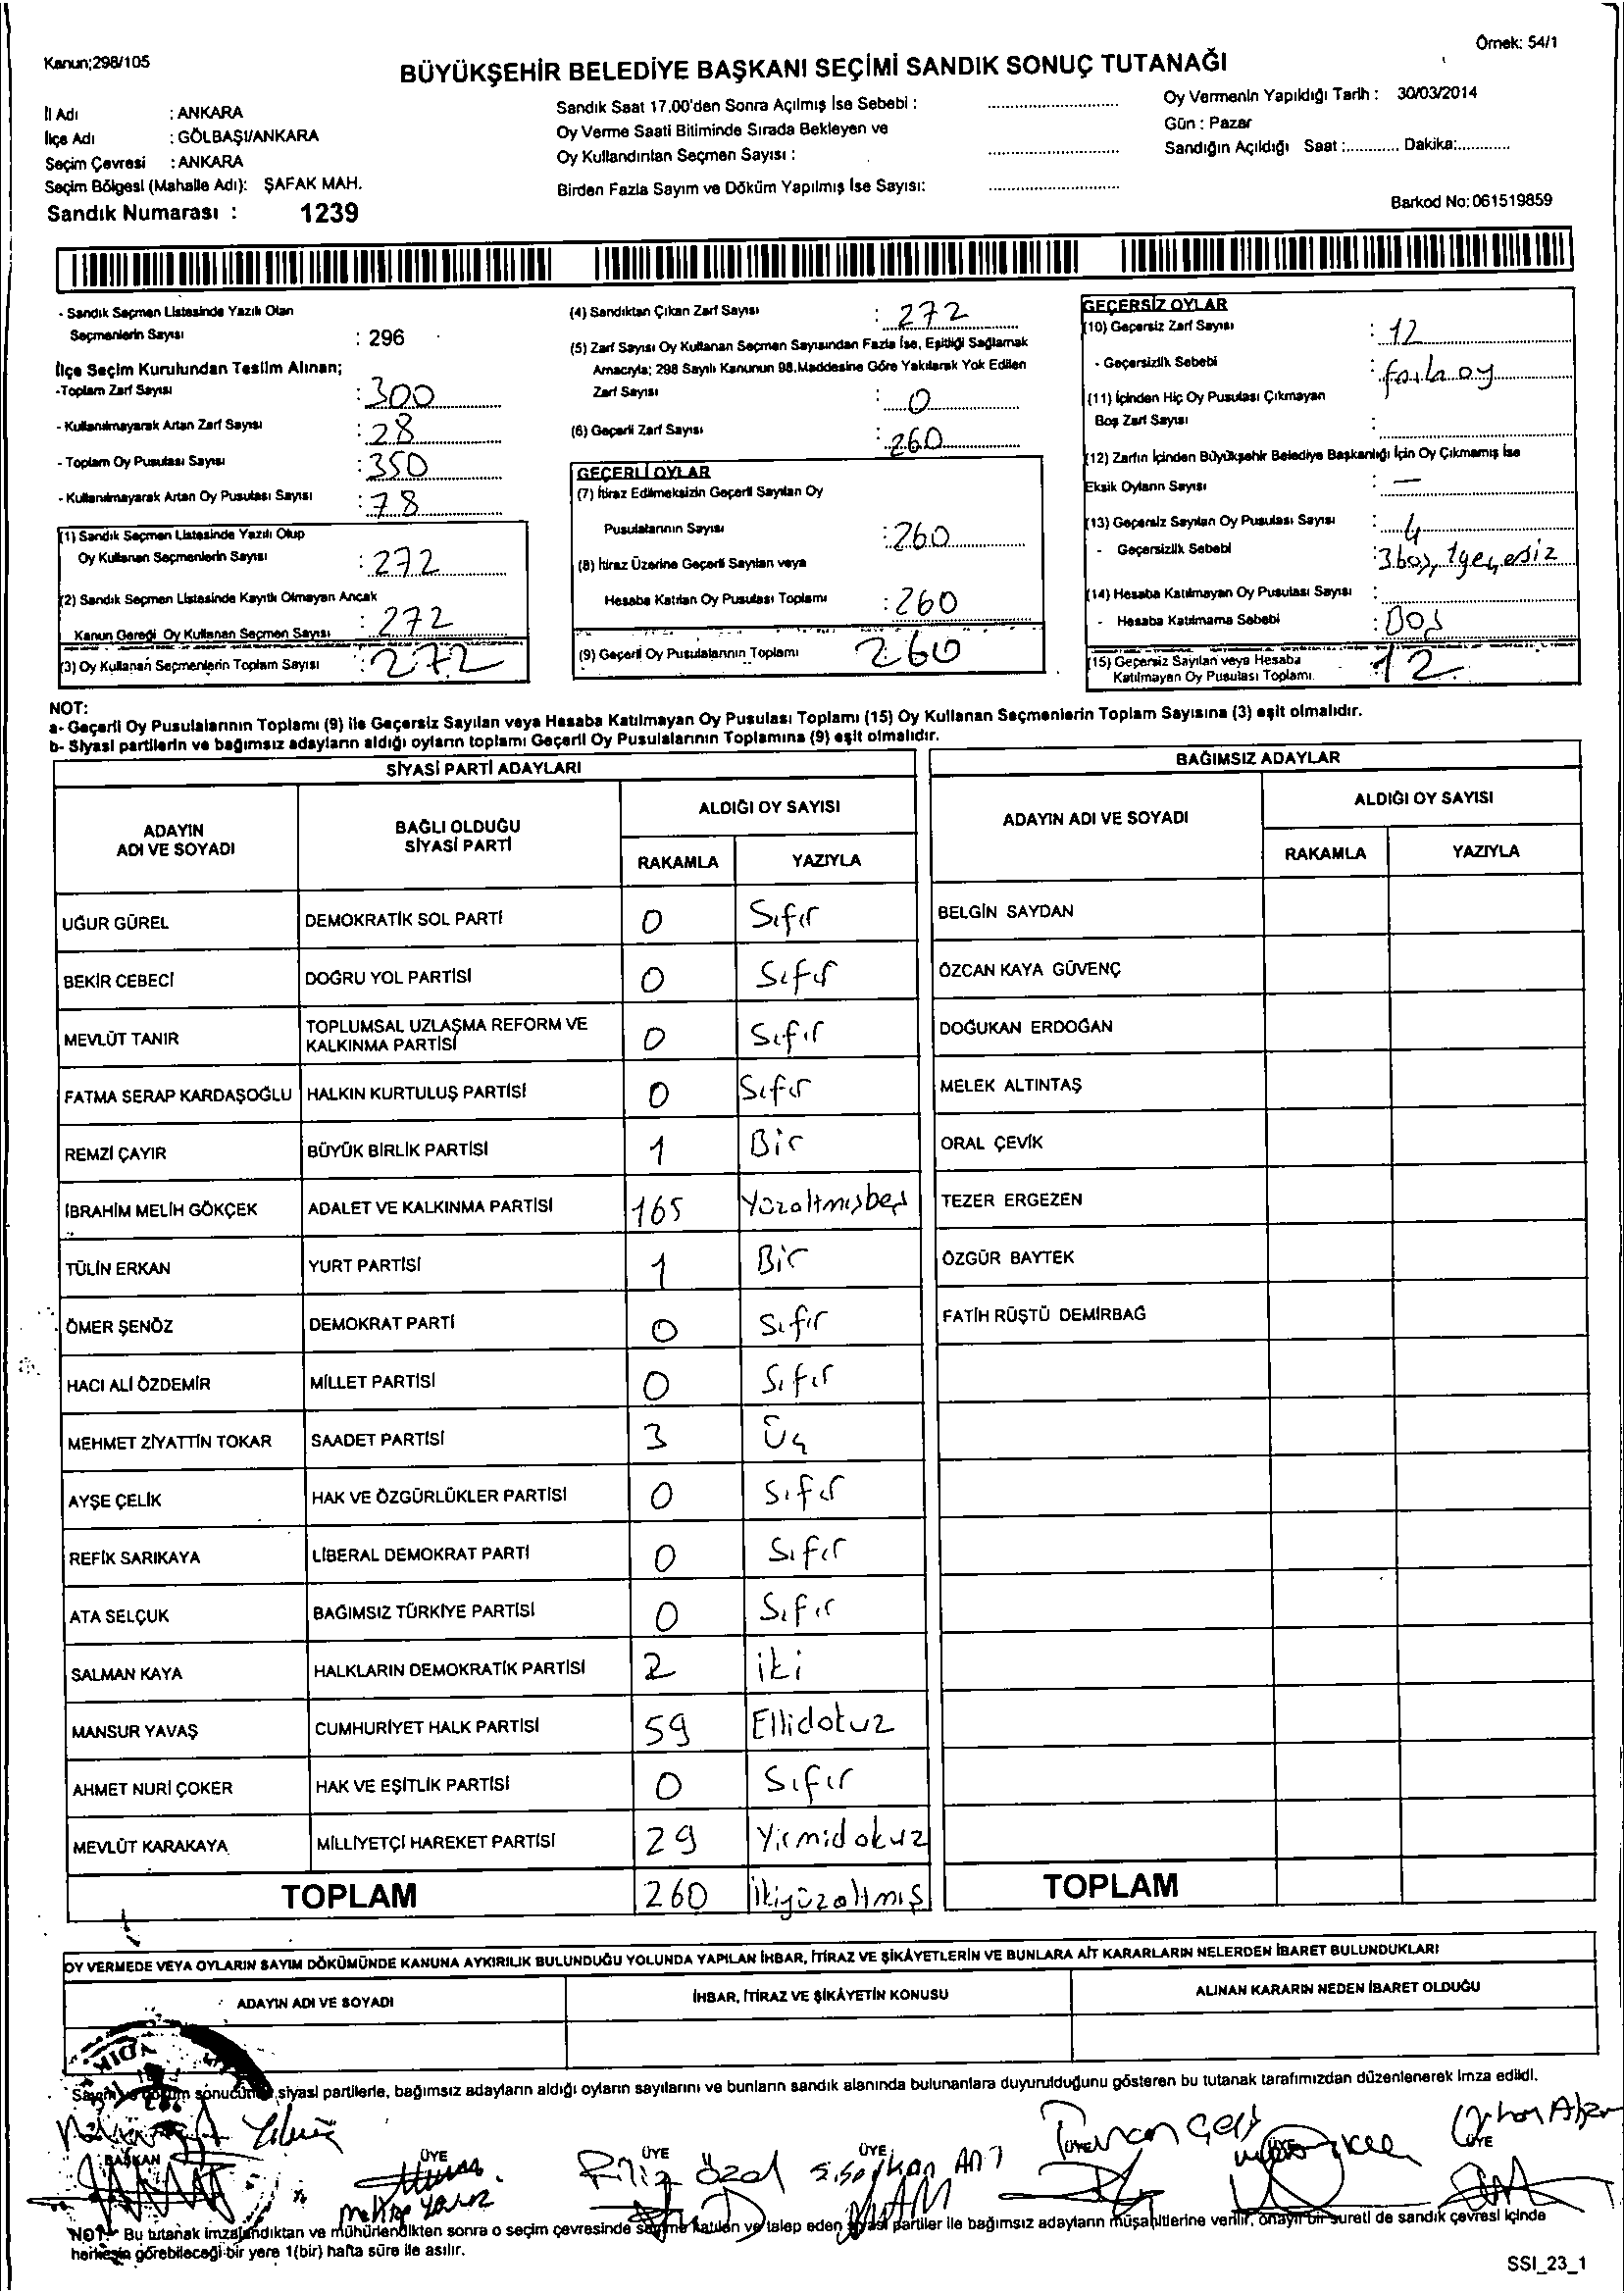 Kanun;298/105
Örnek: 54/1
BÜYÜKŞEHİR BELEDİYE BAŞKANI SEÇİMİ SANDIK SONUÇ TUTANAĞI
İl Adı : ANKARA
İlçe Adı : GÖLBAŞI/ANKARA
Seçim Çevresi : ANKARA
Seçim Bölgesi (Mahalle Adı): ŞAFAK MAH.
Sandık Numarası : 1239
Sandık Saat 17.00'den Sonra Açılmış İse Sebebi :
Oy Verme Saati Bitiminde Sırada Bekleyen ve
Oy Kullandırılan Seçmen Sayısı :
Birden Fazla Sayım ve Döküm Yapılmış İse Sayısı:
Oy Vermenin Yapıldığı Tarih : 30/03/2014
Gün : Pazar
Sandığın Açıldığı Saat :............ Dakika:............
Barkod No: 061519859
- Sandık Seçmen Listesinde Yazılı Olan
Seçmenlerin Sayısı : 296
İlçe Seçim Kurulundan Teslim Alınan;
-Toplam Zarf Sayısı : 300
- Kullanılmayarak Artan Zarf Sayısı : 28
- Toplam Oy Pusulası Sayısı : 350
- Kullanılmayarak Artan Oy Pusulası Sayısı : 78
(1) Sandık Seçmen Listesinde Yazılı Olup
Oy Kullanan Seçmenlerin Sayısı : 272
(2) Sandık Seçmen Listesinde Kayıtlı Olmayan Ancak
Kanun Gereği Oy Kullanan Seçmen Sayısı : 272
(3) Oy Kullanan Seçmenlerin Toplam Sayısı : 272
(4) Sandıktan Çıkan Zarf Sayısı : 272
(5) Zarf Sayısı Oy Kullanan Seçmen Sayısından Fazla İse, Eşitliği Sağlamak
Amacıyla; 298 Sayılı Kanunun 98.Maddesine Göre Yakılarak Yok Edilen
Zarf Sayısı : 0
(6) Geçerli Zarf Sayısı : 260
GEÇERLİ OYLAR
(7) İtiraz Edilmeksizin Geçerli Sayılan Oy
Pusulalarının Sayısı : 260
(8) İtiraz Üzerine Geçerli Sayılan veya
Hesaba Katılan Oy Pusulası Toplamı : 260
(9) Geçerli Oy Pusulalarının Toplamı 260
GEÇERSİZ OYLAR
(10) Geçersiz Zarf Sayısı : 12
- Geçersizlik Sebebi : fazla oy
(11) İçinden Hiç Oy Pusulası Çıkmayan
Boş Zarf Sayısı :
(12) Zarfın İçinden Büyükşehir Belediye Başkanlığı İçin Oy Çıkmamış İse
Eksik Oyların Sayısı : —
(13) Geçersiz Sayılan Oy Pusulası Sayısı : 4
- Geçersizlik Sebebi : 3 boş, 1 geçesiz
(14) Hesaba Katılmayan Oy Pusulası Sayısı :
- Hesaba Katılmama Sebebi : Boş
(15) Geçersiz Sayılan veya Hesaba
Katılmayan Oy Pusulası Toplamı. 12
NOT:
a- Geçerli Oy Pusulalarının Toplamı (9) ile Geçersiz Sayılan veya Hesaba Katılmayan Oy Pusulası Toplamı (15) Oy Kullanan Seçmenlerin Toplam Sayısına (3) eşit olmalıdır.
b- Siyasi partilerin ve bağımsız adayların aldığı oyların toplamı Geçerli Oy Pusulalarının Toplamına (9) eşit olmalıdır.
SİYASİ PARTİ ADAYLARI
ADAYIN ADI VE SOYADI
BAĞLI OLDUĞU SİYASİ PARTİ
ALDIĞI OY SAYISI
RAKAMLA YAZIYLA
UĞUR GÜREL DEMOKRATİK SOL PARTİ 0 Sıfır
BEKİR CEBECİ DOĞRU YOL PARTİSİ 0 Sıfır
MEVLÜT TANIR TOPLUMSAL UZLAŞMA REFORM VE KALKINMA PARTİSİ 0 Sıfır
FATMA SERAP KARDAŞOĞLU HALKIN KURTULUŞ PARTİSİ 0 Sıfır
REMZİ ÇAYIR BÜYÜK BİRLİK PARTİSİ 1 Bir
İBRAHİM MELİH GÖKÇEK ADALET VE KALKINMA PARTİSİ 165 Yüzaltmışbeş
TÜLİN ERKAN YURT PARTİSİ 1 Bir
ÖMER ŞENÖZ DEMOKRAT PARTİ 0 Sıfır
HACI ALİ ÖZDEMİR MİLLET PARTİSİ 0 Sıfır
MEHMET ZİYATTİN TOKAR SAADET PARTİSİ 3 Üç
AYŞE ÇELİK HAK VE ÖZGÜRLÜKLER PARTİSİ 0 Sıfır
REFİK SARIKAYA LİBERAL DEMOKRAT PARTİ 0 Sıfır
ATA SELÇUK BAĞIMSIZ TÜRKİYE PARTİSİ 0 Sıfır
SALMAN KAYA HALKLARIN DEMOKRATİK PARTİSİ 2 iki
MANSUR YAVAŞ CUMHURİYET HALK PARTİSİ 59 Ellidokuz
AHMET NURİ ÇOKER HAK VE EŞİTLİK PARTİSİ 0 Sıfır
MEVLÜT KARAKAYA MİLLİYETÇİ HAREKET PARTİSİ 29 Yirmidokuz
TOPLAM 260 İkiyüzaltmış
BAĞIMSIZ ADAYLAR
ADAYIN ADI VE SOYADI
ALDIĞI OY SAYISI
RAKAMLA YAZIYLA
BELGİN SAYDAN
ÖZCAN KAYA GÜVENÇ
DOĞUKAN ERDOĞAN
MELEK ALTINTAŞ
ORAL ÇEVİK
TEZER ERGEZEN
ÖZGÜR BAYTEK
FATİH RÜŞTÜ DEMİRBAĞ
TOPLAM
OY VERMEDE VEYA OYLARIN SAYIM DÖKÜMÜNDE KANUNA AYKIRILIK BULUNDUĞU YOLUNDA YAPILAN İHBAR, İTİRAZ VE ŞİKÂYETLERİN VE BUNLARA AİT KARARLARIN NELERDEN İBARET BULUNDUKLARI
ADAYIN ADI VE SOYADI
İHBAR, İTİRAZ VE ŞİKÂYETİN KONUSU
ALINAN KARARIN NEDEN İBARET OLDUĞU
Sayım ve döküm sonucunda siyasi partilerle, bağımsız adayların aldığı oyların sayılarını ve bunların sandık alanında bulunanlara duyurulduğunu gösteren bu tutanak tarafımızdan düzenlenerek imza edildi.
BAŞKAN ÜYE ÜYE ÜYE ÜYE ÜYE ÜYE
Filiz Özal
NOT:- Bu tutanak imzalandıktan ve mühürlendikten sonra o seçim çevresinde sayıma katılan ve talep eden siyasi partiler ile bağımsız adayların müşahitlerine verilir, onaylı bir sureti de sandık çevresi içinde
herkesin görebileceği bir yere 1(bir) hafta süre ile asılır.
SSI_23_1